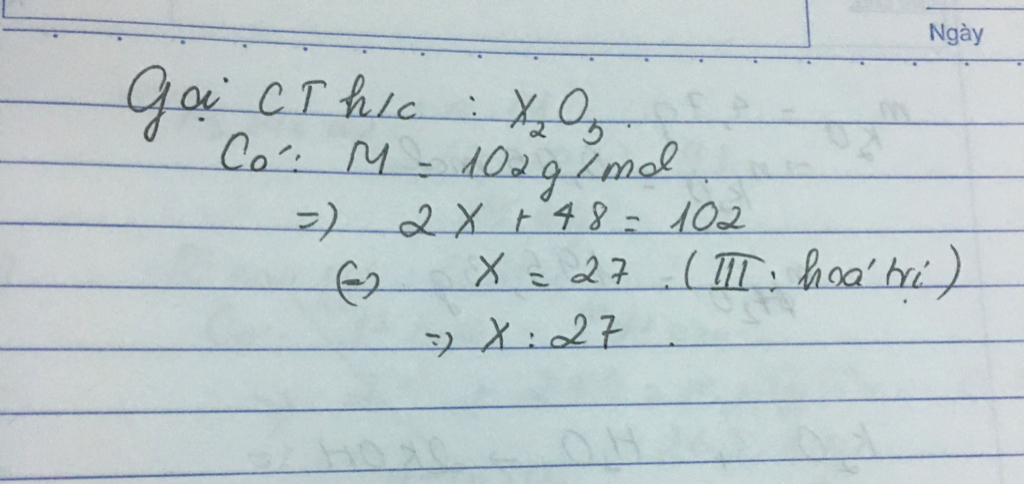 Ngày
Gọi CT h/c : X₂O₃.
Có: M = 102g/mol.
=) 2X + 48 = 102
(=) X = 27 . (III : hoá trị)
=) X : 27 .